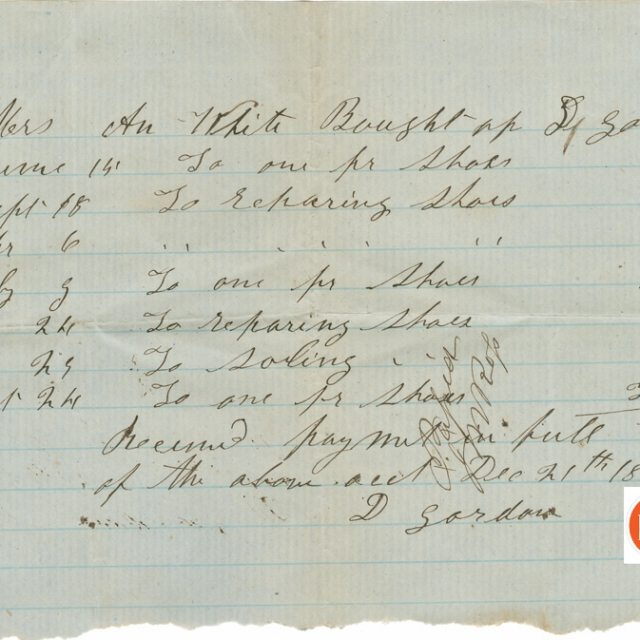 An White Bought of D Go
June 15 To one pr Shoes
Sept 18 To Reparing Shoes
6 " " " "
9 To one pr Shoes
24 To reparing Shoes
29 To Soling "
24 To one pr Shoes
Received payment in full
of the above acct Dec 21th 18
D Gordon